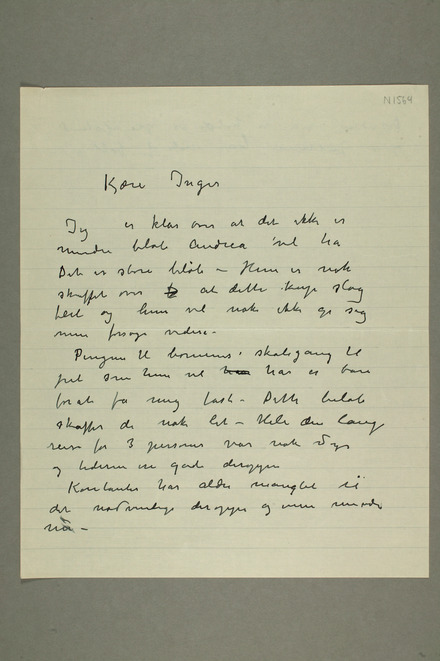 N1564
Kjære Inger
Jeg er klar over at det ikke er
mindre beløb Andrea vil ha
Det er store beløb – Hun er nok
skuffet over at dette kupp slog
feil og hun vil nok ikke gi sig
men forsøge videre –
Pengene til barnets skolegang til
som hun vil har er bare
for at få mig fast – Dette beløb
skaffes de nok let – Hele den lange
reise for 3 personer var nok dyr
og tiderne er gode
Konstanter har aldri manglet
det nødvendige og men mindre
nu –